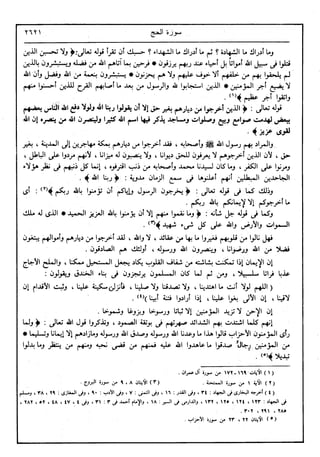 سورة الحج ٢٦٢١
وما أدراك ما الشهادة ؟ ثم ما أدراك ما الشهداء ؟ حسبك أن تقرأ قوله تعالى: ﴿ ولا تحسبن الذين
قتلوا فى سبيل الله أمواتاً بل أحياء عند ربهم يرزقون * فرحين بما آتاهم الله من فضله ويستبشرون بالذين
لم يلحقوا بهم من خلفهم ألا خوف عليهم ولا هم يحزنون * يستبشرون بنعمة من الله وفضل وأن الله
لا يضيع أجر المؤمنين * الذين استجابوا لله والرسول من بعد ما أصابهم القرح للذين أحسنوا منهم
واتقوا أجر عظيم ﴾(١) .
قوله تعالى : ﴿ الذين أخرجوا من ديارهم بغير حق إلا أن يقولوا ربنا الله ولولا دفع الله الناس بعضهم
ببعض لهدمت صوامع وبيع وصلوات ومساجد يذكر فيها اسم الله كثيرا ولينصرن الله من ينصره إن الله
لقوى عزيز ﴾ .
والمراد بهم رسول الله ﷺ وأصحابه ، فقد أخرجوا من ديارهم بمكة مهاجرين إلى المدينة ، بغير
حق ، لأن الذين أخرجوهم لا يعرفون للحق ديوانا ، ولا ينصبون له ميزانا ، لأنهم مردوا على الباطل ،
ومرنوا على الكفر ، وما كان لسيدنا محمد وأصحابه من ذنب اقترفوه ، إنما كل ذنبهم فى نظر هؤلاء
الجاحدين المبطلين أنهم أعلنوها فى سمع الزمان مدوية : ﴿ ربنا الله ﴾ .
وذلك كما فى قوله تعالى : ﴿ يخرجون الرسول وإياكم أن تؤمنوا بالله ربكم ﴾(٢) : أى
ما أخرجوكم إلا لإيمانكم بالله ربكم .
وكما فى قوله جل شأنه : ﴿ وما نقموا منهم إلا أن يؤمنوا بالله العزيز الحميد * الذى له ملك
السموات والأرض والله على كل شىء شهيد ﴾(٣) .
فهل نالوا من قلوبهم فغيروا ما بها من عقائد ، لا والله ، لقد أخرجوا من ديارهم وأموالهم يبتغون
فضلا من الله ورضوانا ، وينصرون الله ورسوله ، أولئك هم الصادقون .
إن الإيمان إذا تمكنت بشاشته من شغاف القلوب يكاد يجعل المستحيل ممكنا ، والملح الأجاج
عذبا فراتا سلسبيلا ، ومن ثم لما كان المسلمون يرتجزون فى بناء الخندق ويقولون :
( اللهم لولا أنت ما اهتدينا ، ولا تصدقنا ولا صلينا ، فأنزلن سكينة علينا ، وثبت الأقدام إن
لاقينا ، إن الألى بغوا علينا ، إذا أرادوا فتنة أبينا )(٤) .
إن الإحن لا تزيد المؤمنين إلا ثباتا ورسوخا وبزوغا وشموخا .
إنهم كلما اشتدت بهم الشدائد صهرتهم فى بوتقة الصمود ، وتذكروا قول الله تعالى : ﴿ ولما
رأى المؤمنون الأحزاب قالوا هذا ما وعدنا الله ورسوله وصدق الله ورسوله ومازادهم إلا إيمانا وتسليما *
من المؤمنين رجالٌ صدقوا ما عاهدوا الله عليه فمنهم من قضى نحبه ومنهم من ينتظر وما بدلوا
تبديلا ﴾(٥) .
(١) الآيات ١٦٩ – ١٧٢ من سورة آل عمران .
(٢) الآية ١ من سورة الممتحنة . (٣) الآيتان ٨ ، ٩ من سورة البروج .
(٤) أخرجه البخارى فى الجهاد : ٣٤ ، وفى القدر : ١٦ ، وفى التمنى : ٧ ، وفى الأدب : ٩٠ ، وفى المغازى : ٢٩ ، ٣٨ ، ومسلم
فى الجهاد : ١٢٣ ، ١٢٤ ، ١٢٥ ، ١٣٢ ، والدارمى فى السير : ١٨ ، والإمام أحمد فى ٣ : ٤٣١ ، وفى ٤ : ٤٧ ، ٤٨ ، ٥٢ ، ٢٨٢ ،
٢٨٥ ، ٢٩١ ، ٣٠٢ .
(٥) الآيتان ٢٢ ، ٢٣ من سورة الأحزاب .